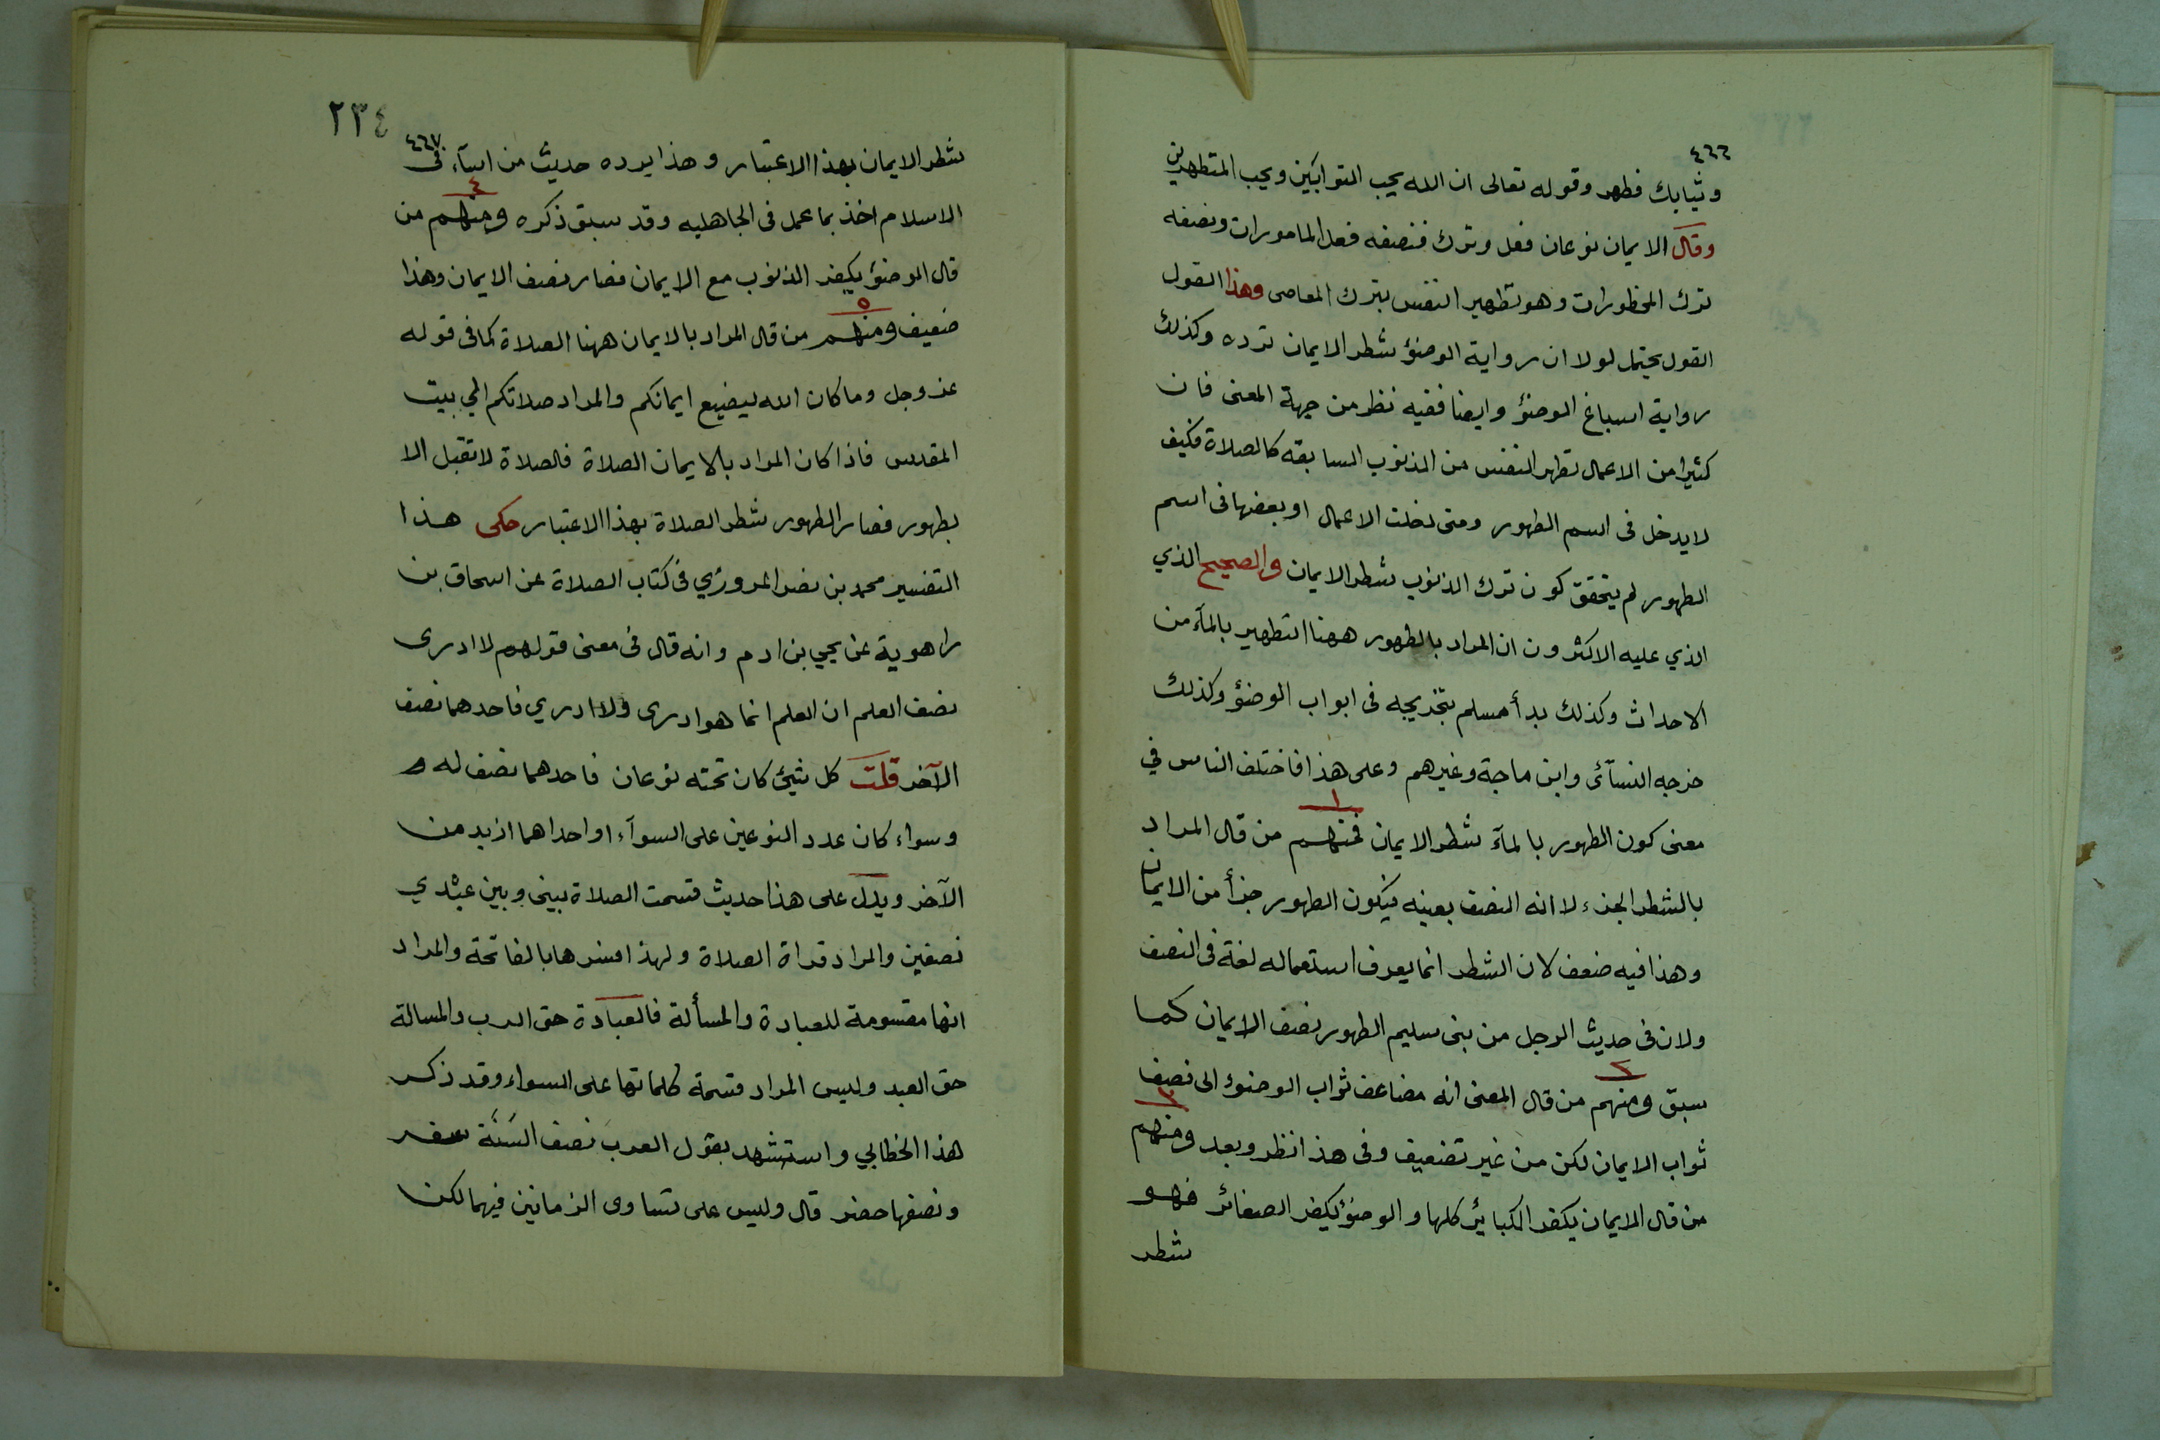 ٤٦٦
وثيابك فطهر وقوله تعالى ان الله يحب التوابين ويحب المتطهرين
وقال الايمان نوعان فعل وترك فنصفه فعل المامورات ونصفه
ترك المحظورات وهو تطهير النفس بترك المعاصى وهذا القول
القول يحتمل لولا ان رواية الوضؤ شطر الايمان ترده وكذلك
رواية اسباغ الوضؤ وايضا ففيه نظر من جهة المعنى فان
كثيرا من الاعمال تطهر النفس من الذنوب السابقه كالصلاة فكيف
لا يدخل فى اسم الطهور ومتى دخلت الاعمال او بعضها فى اسم
الطهور لم يتحقق كون ترك الذنوب شطر الايمان والصحيح الذي
الذي عليه الاكثرون ان المراد بالطهور ههنا التطهير بالمآء من
الاحداث وكذلك بدأ مسلم بتخريجه فى ابواب الوضؤ وكذلك
خرجه النسآئى وابن ماجة وغيرهم وعلى هذا فاختلف الناس في
معنى كون الطهور بالمآء شطر الايمان فمنهم من قال المراد
١
بالشطر الجزء لا انه النصف بعينه فيكون الطهور جزأ من الايمان
وهذا فيه ضعف لان الشطر انما يعرف استعماله لغة فى النصف
ولان فى حديث الرجل من بنى سليم الطهور نصف الايمان كما
سبق ومنهم من قال المعنى انه مضاعف ثواب الوضوء الى نصف
٢
ثواب الايمان لكن من غير تضعيف وفى هذا نظر وبعد ومنهم
٣
من قال الايمان يكفر الكبائر كلها والوضؤ يكفر الصغائر فهو
شطر
٢٣٤
٤٦٧
شطر الايمان بهذا الاعتبار وهذا يرده حديث من اسآء فى
الاسلام اخذ بما عمل فى الجاهليه وقد سبق ذكره ومنهم من
٤
قال الوضؤ يكفر الذنوب مع الايمان فصار نصف الايمان وهذا
ضعيف ومنهم من قال المراد بالايمان ههنا الصلاة كما فى قوله
٥
عز وجل وما كان الله ليضيع ايمانكم والمراد صلاتكم الى بيت
المقدس فاذا كان المراد بالايمان الصلاة فالصلاة لا تقبل الا
بطهور فصار الطهور شطر الصلاة بهذا الاعتبار حكى هذا
التفسير محمد بن نصر المروزي فى كتاب الصلاة عن اسحاق بن
راهوية عن يحيي بن ادم وانه قال فى معنى قولهم لا ادرى
نصف العلم ان العلم انما هو ادرى ولا ادري فاحدهما نصف
الآخر قلت كل شيئ كان تحته نوعان فاحدهما نصف له و
وسواء كان عدد النوعين على السوآء او احداهما ازيد من
الآخر ويدل على هذا حديث قسمت الصلاة بينى وبين عبدي
نصفين والمراد قراة الصلاة ولهذا فسرها بالفاتحة والمراد
انها مقسومة للعبادة والمسألة فالعبادة حق الرب والمسالة
حق العبد وليس المراد قسمة كلماتها على السواء وقد ذكر
هذا الخطابي واستشهد بقول العرب نصف السنة سفر
ونصفها حضر قال وليس على تساوى الزمانين فيهما لكن